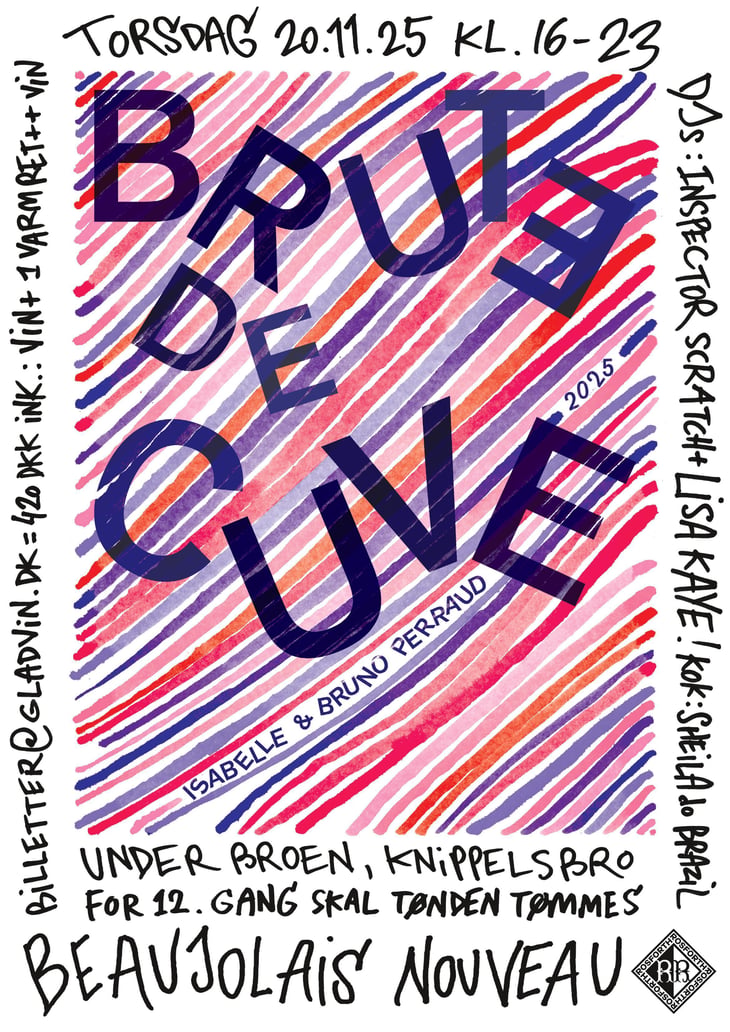 TORSDAG 20.11.25 KL. 16-23
BRUTE
DE
CUVE
2025
ISABELLE & BRUNO PERRAUD
BILLETTER@GLADVIN.DK = 420 DKK INK.: VIN + 1 VARM RET ++ VIN
DJs: INSPECTOR SCRATCH + LISA KAYE! KOK: SHEILA do BRAZIL
UNDER BROEN, KNIPPELSBRO
FOR 12. GANG SKAL TØNDEN TØMMES
BEAUJOLAIS NOUVEAU
ROSFORTH ROSFORTH ROSFORTH ROSFORTH
RR